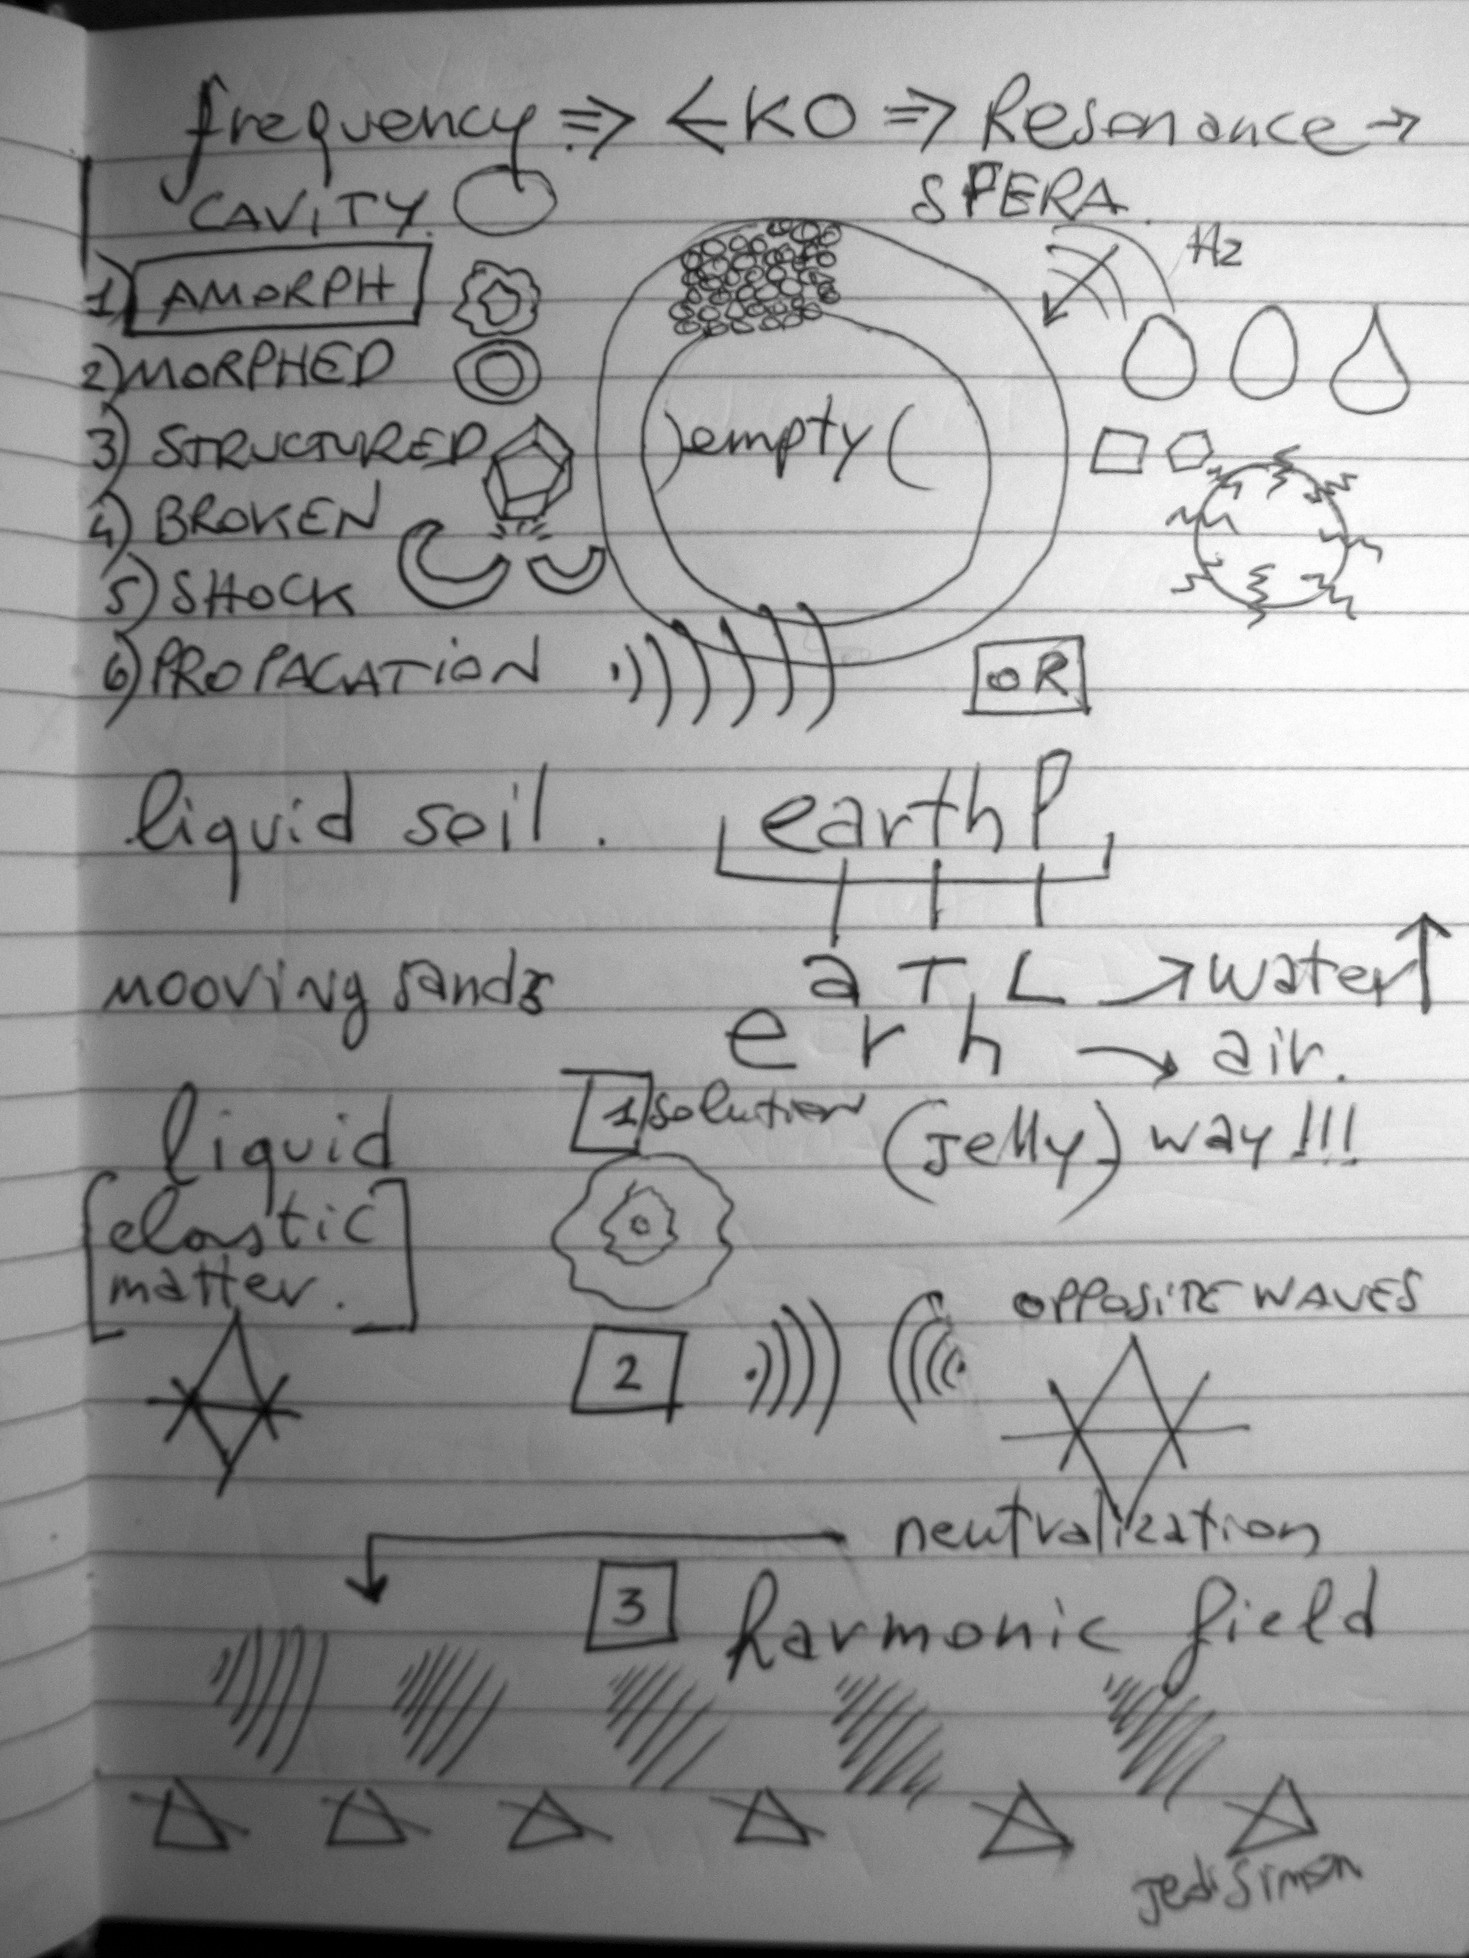 frequency ⇒ ← KO ⇒ Resonance →
CAVITY. SFERA.
Hz
1) AMORPH
2) MORPHED
3) STRUCTURED
)empty(
4) BROKEN
5) SHOCK
6) PROPAGATION
OR
liquid soil. earth
mooving sands a T L → water ↑
e r h → air.
1 solution (Jelly) way!!!
liquid
[elastic
matter.]
OPPOSITE WAVES
2
neutralization
3 harmonic field
Jedi Simon